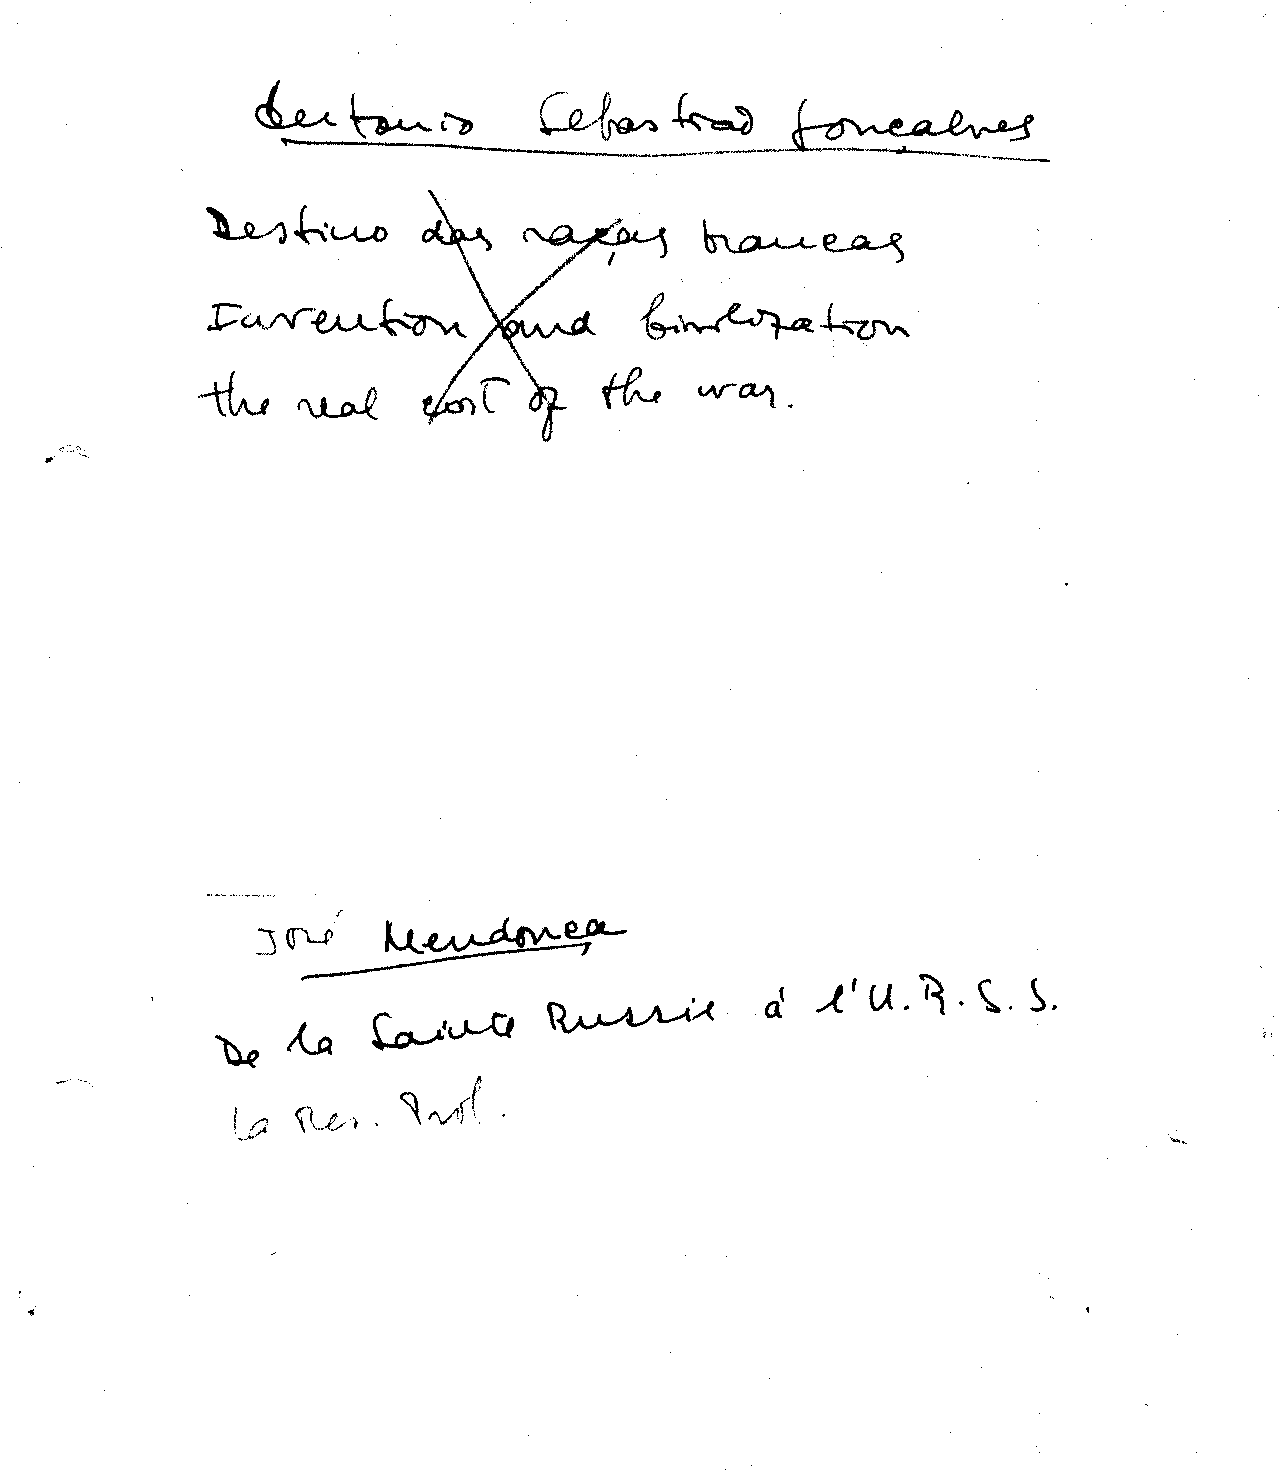 Antonio Sebastiao Gonçalves
Destino das raças brancas
Invention and Civilization
the real cost of the war.
José Mendonça
De la Sainte Russie á l'U.R.S.S.
La Rev. Prol.